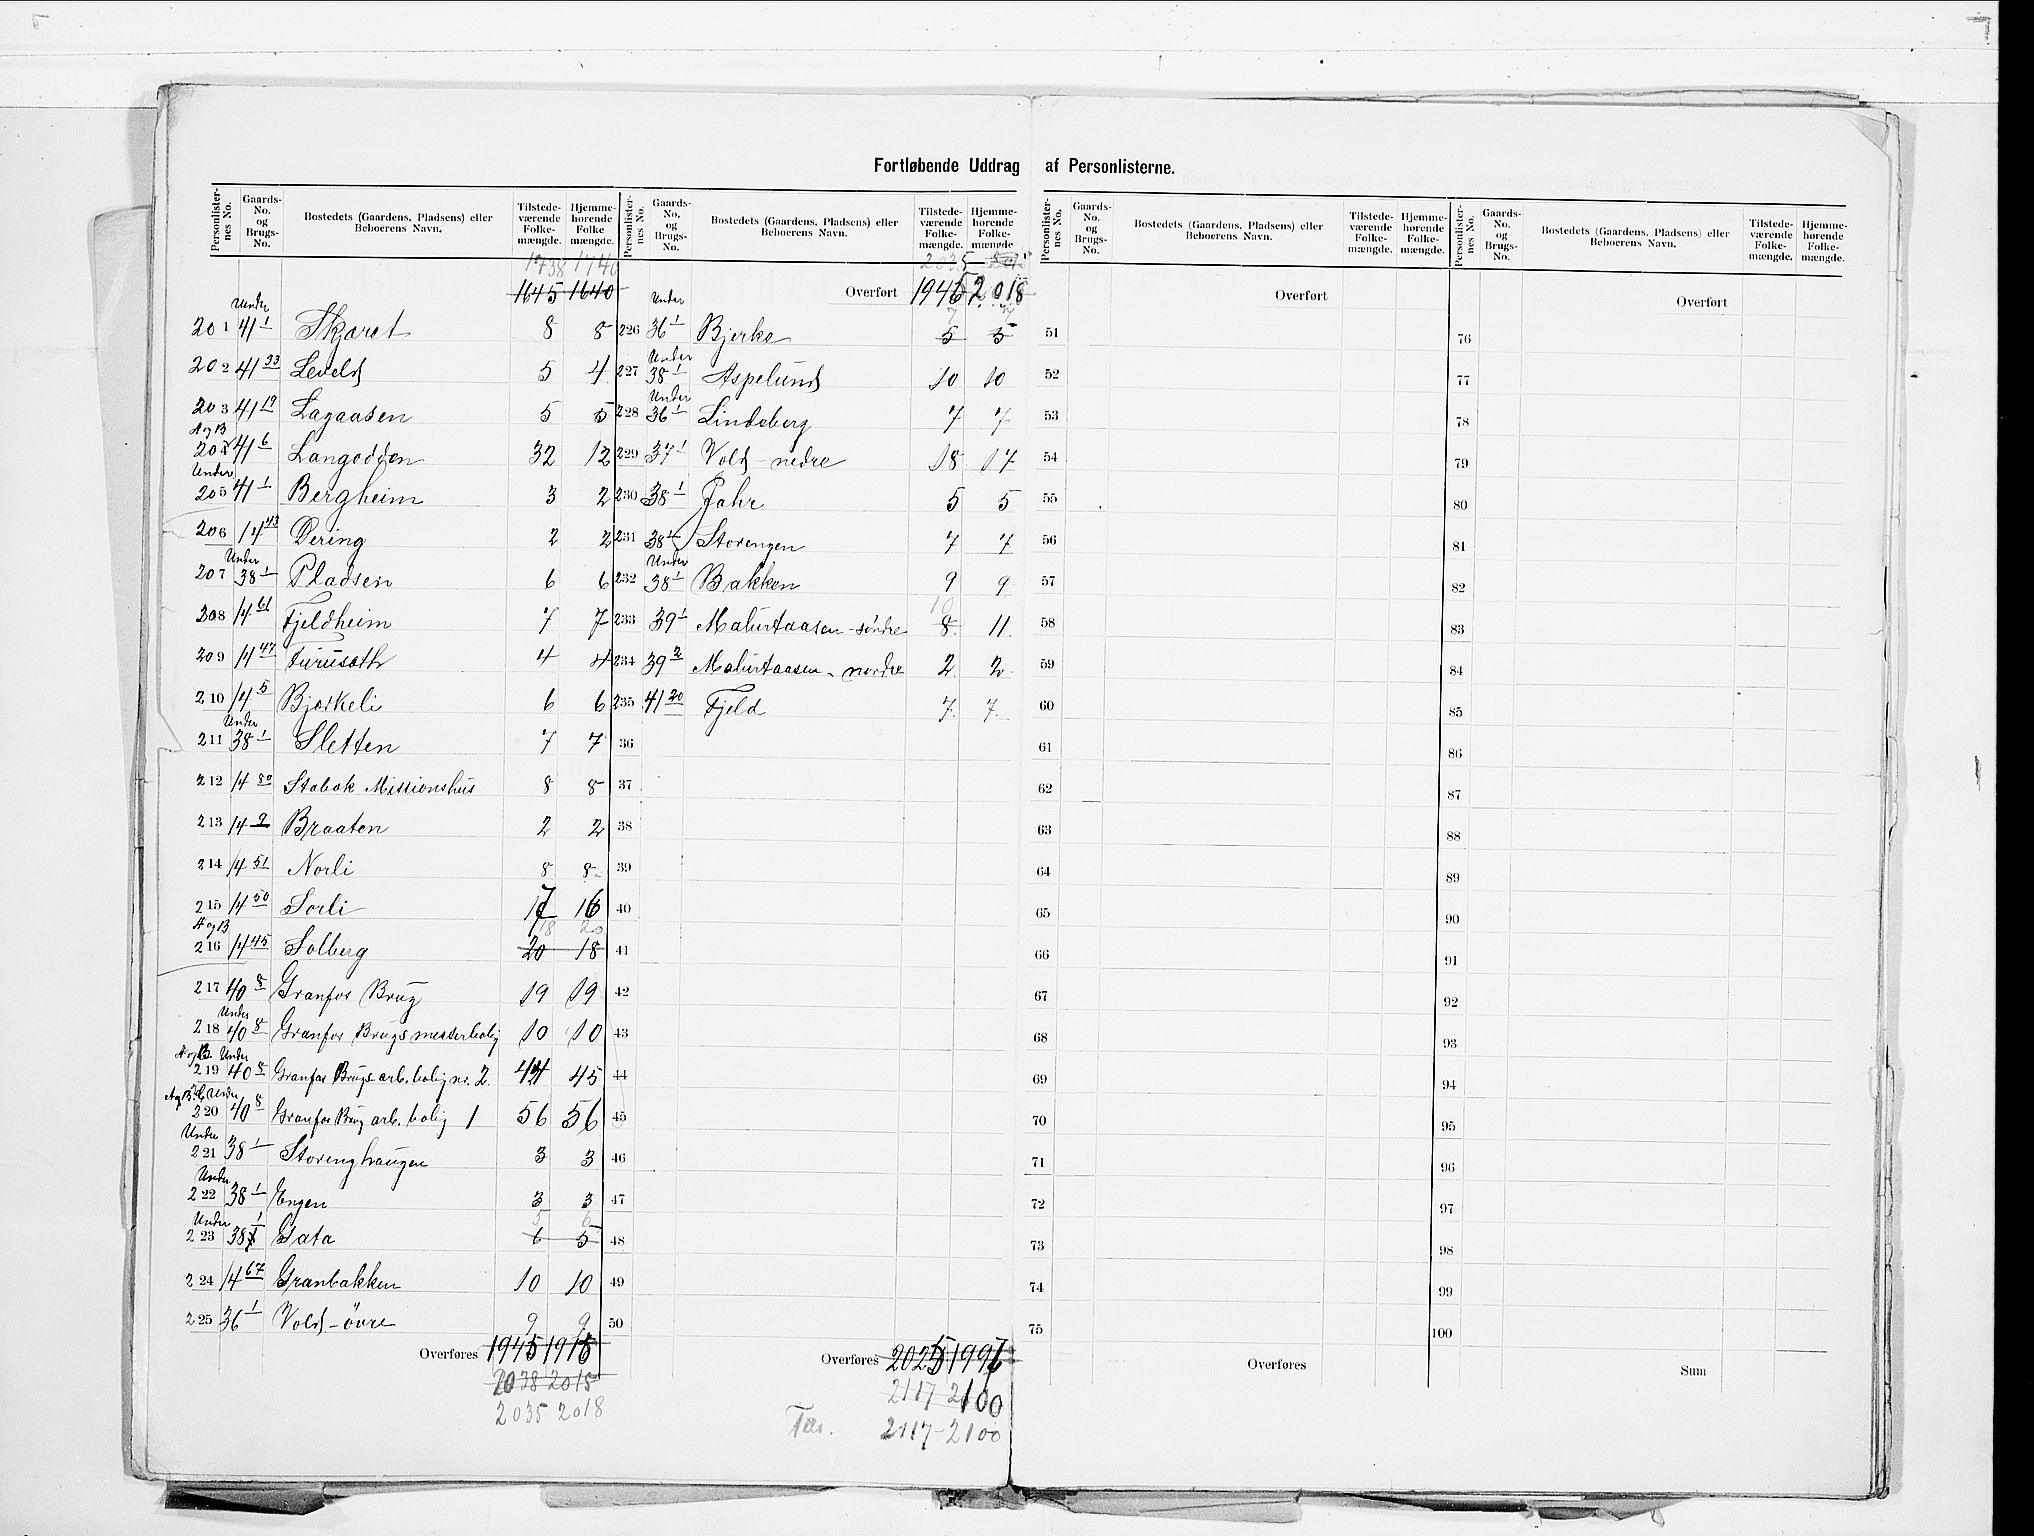 Fortløbende Uddrag af Personlisterne.
Personlisternes No. Gaards-No. og Brugs-No. Bostedets (Gaardens, Pladsens) eller Beboerens Navn. Tilstedeværende Folkemængde. Hjemmehørende Folkemængde.
1738 1740
1645 1640
Under
201 41 1 Skjaret 8 8
202 41 33 Leveld 5 4
203 41 19 Lagaasen 5 5
A og B
204 41 6 Langodden 32 12
Under
205 41 1 Bergheim 3 2
206 14 43 Dering 2 2
Under
207 38 1 Pladsen 6 6
208 14 61 Fjeldheim 7 7
209 14 47 Furuseth 4 4
210 14 5 Bjerkeli 6 6
Under
211 38 1 Sletten 7 7
212 14 80 Stabæk Missionshus 8 8
213 14 9 Braaten 2 2
214 14 51 Norli 8 8
215 14 50 Sorli 17 16
A og B 18 20
216 14 45 Solberg 20 18
217 40 8 Granfos Brug 19 19
Under
218 40 8 Granfos Brugs mesterbolig 10 10
A og B Under
219 40 8 Granfos Brugs arb. bolig nr. 2. 44 45
Under
220 40 8 Granfos Brug arb. bolig 1 56 56
Under
221 38 1 Storenghaugen 3 3
Under
222 38 1 Engen 3 3
Under 5 6
223 38 1 Gata 6 5
224 14 67 Granbakken 10 10
225 36 1 Vold - övre 9 9
Overføres 1945 1918
2038 2015
2035 2018
Personlisternes No. Gaards-No. og Brugs-No. Bostedets (Gaardens, Pladsens) eller Beboerens Navn. Tilstedeværende Folkemængde. Hjemmehørende Folkemængde
2035
Overført 1945 2018
Under 7 7
226 36 1 Bjerke 5 5
Under
227 38 1 Aspelund 10 10
Under
228 36 1 Lindeberg 7 7
229 37 1 Vold - nedre 18 17
230 38 1 Jahr 5 5
231 38 1 Storengen 7 7
Under
232 38 1 Bakken 9 9
10
233 39 1 Malurtaasen - söndre 8. 11.
234 39 2 Malurtaasen - nordre 2. 2.
235 41 20 Fjeld 7. 7.
36
37
38
39
40
41
42
43
44
45
46
47
48
49
50
Overføres 2025 1997
2117 2100
2117 - 2100
Personlisternes No. Gaards-No. og Brugs-No. Bostedets (Gaardens, Pladsens) eller Beboerens Navn. Tilstedeværende Folkemængde. Hjemmehørende Folkemængde.
Overført
51
52
53
54
55
56
57
58
59
60
61
62
63
64
65
66
67
68
69
70
71
72
73
74
75
Overføres
Personlisternes No. Gaards-No. og Brugs-No. Bostedets (Gaardens, Pladsens) eller Beboerens Navn. Tilstedeværende Folkemængde. Hjemmehørende Folkemængde.
Overført
76
77
78
79
80
81
82
83
84
85
86
87
88
89
90
91
92
93
94
95
96
97
98
99
100
Sum